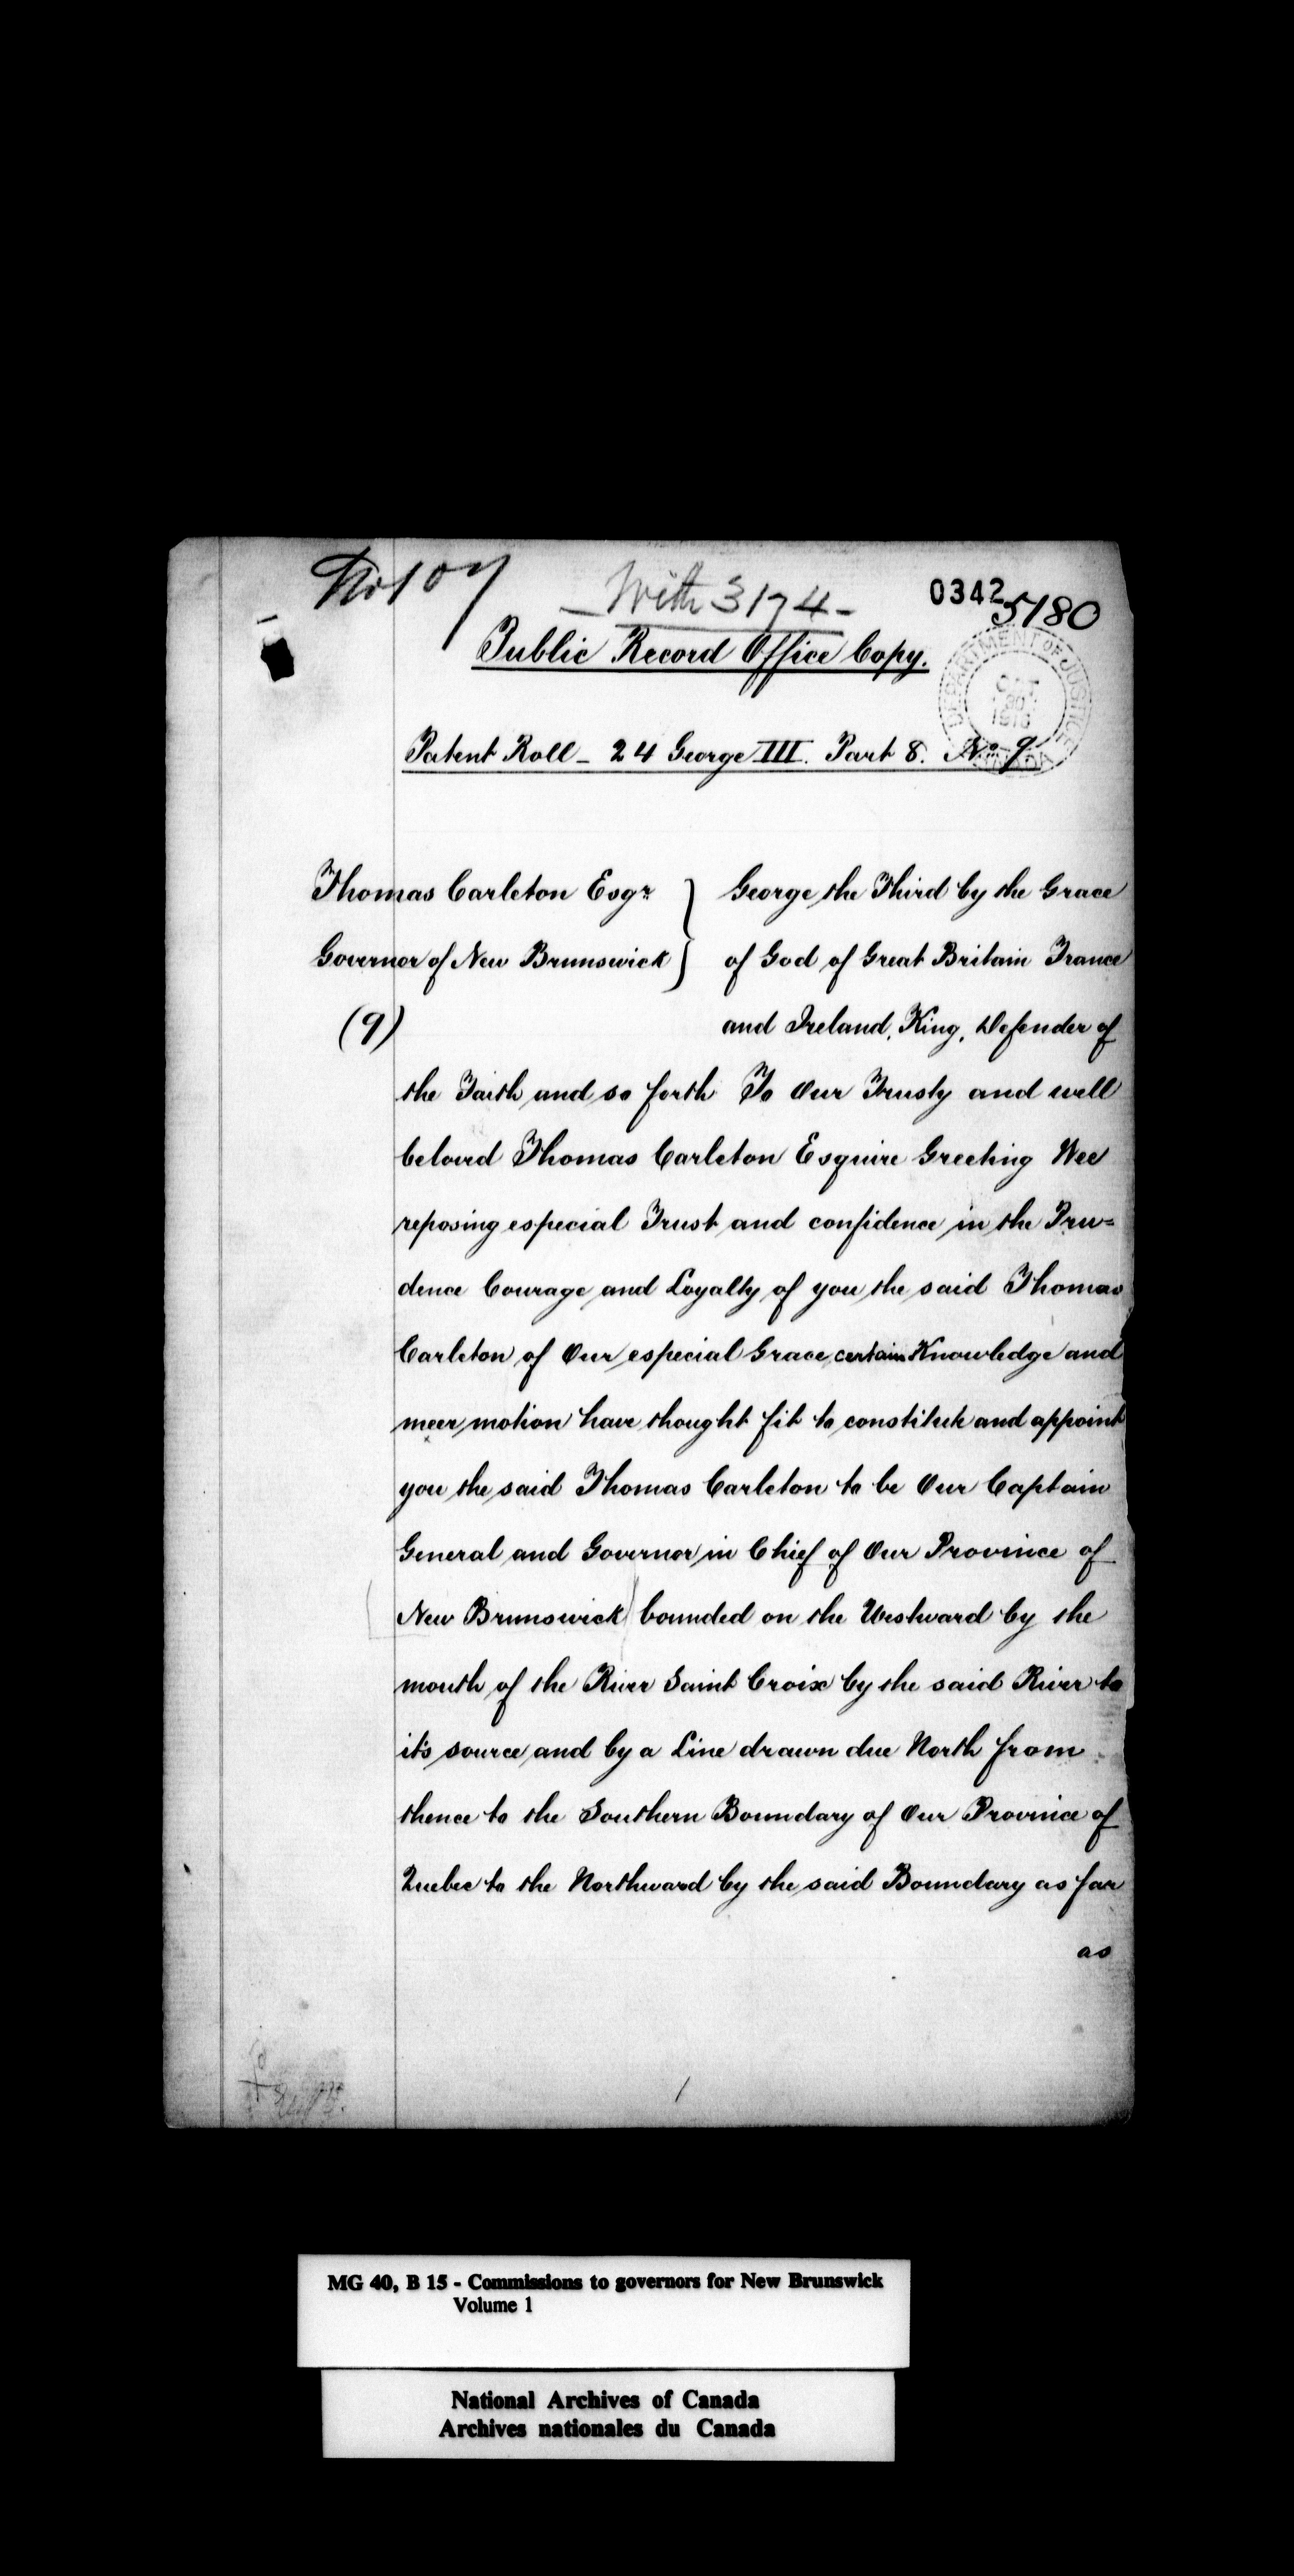 No 107
With 3174 -
0342
5180
Public Record Office Copy.
DEPARTMENT OF JUSTICE
OCT 30 1916
CANADA
Patent Roll - 24 George III. Part 8. No. 9
Thomas Carleton Esqr. } George the Third by the Grace
Governor of New Brunswick } of God of Great Britain France
(9) and Ireland, King, Defender of
the Faith and so forth To Our Trusty and well
beloved Thomas Carleton Esquire Greeting Wee
reposing especial Trust and confidence in the Pru=
dence Courage and Loyalty of you the said Thomas
Carleton of Our especial Grace certain Knowledge and
meer motion have thought fit to constitute and appoint
you the said Thomas Carleton to be Our Captain
General and Governor in Chief of Our Province of
New Brunswick bounded on the Westward by the
mouth of the River Saint Croix by the said River to
it's source and by a Line drawn due North from
thence to the Southern Boundary of Our Province of
Quebec to the Northward by the said Boundary as far
as
1
MG 40, B 15 - Commissions to governors for New Brunswick
Volume 1
National Archives of Canada
Archives nationales du Canada